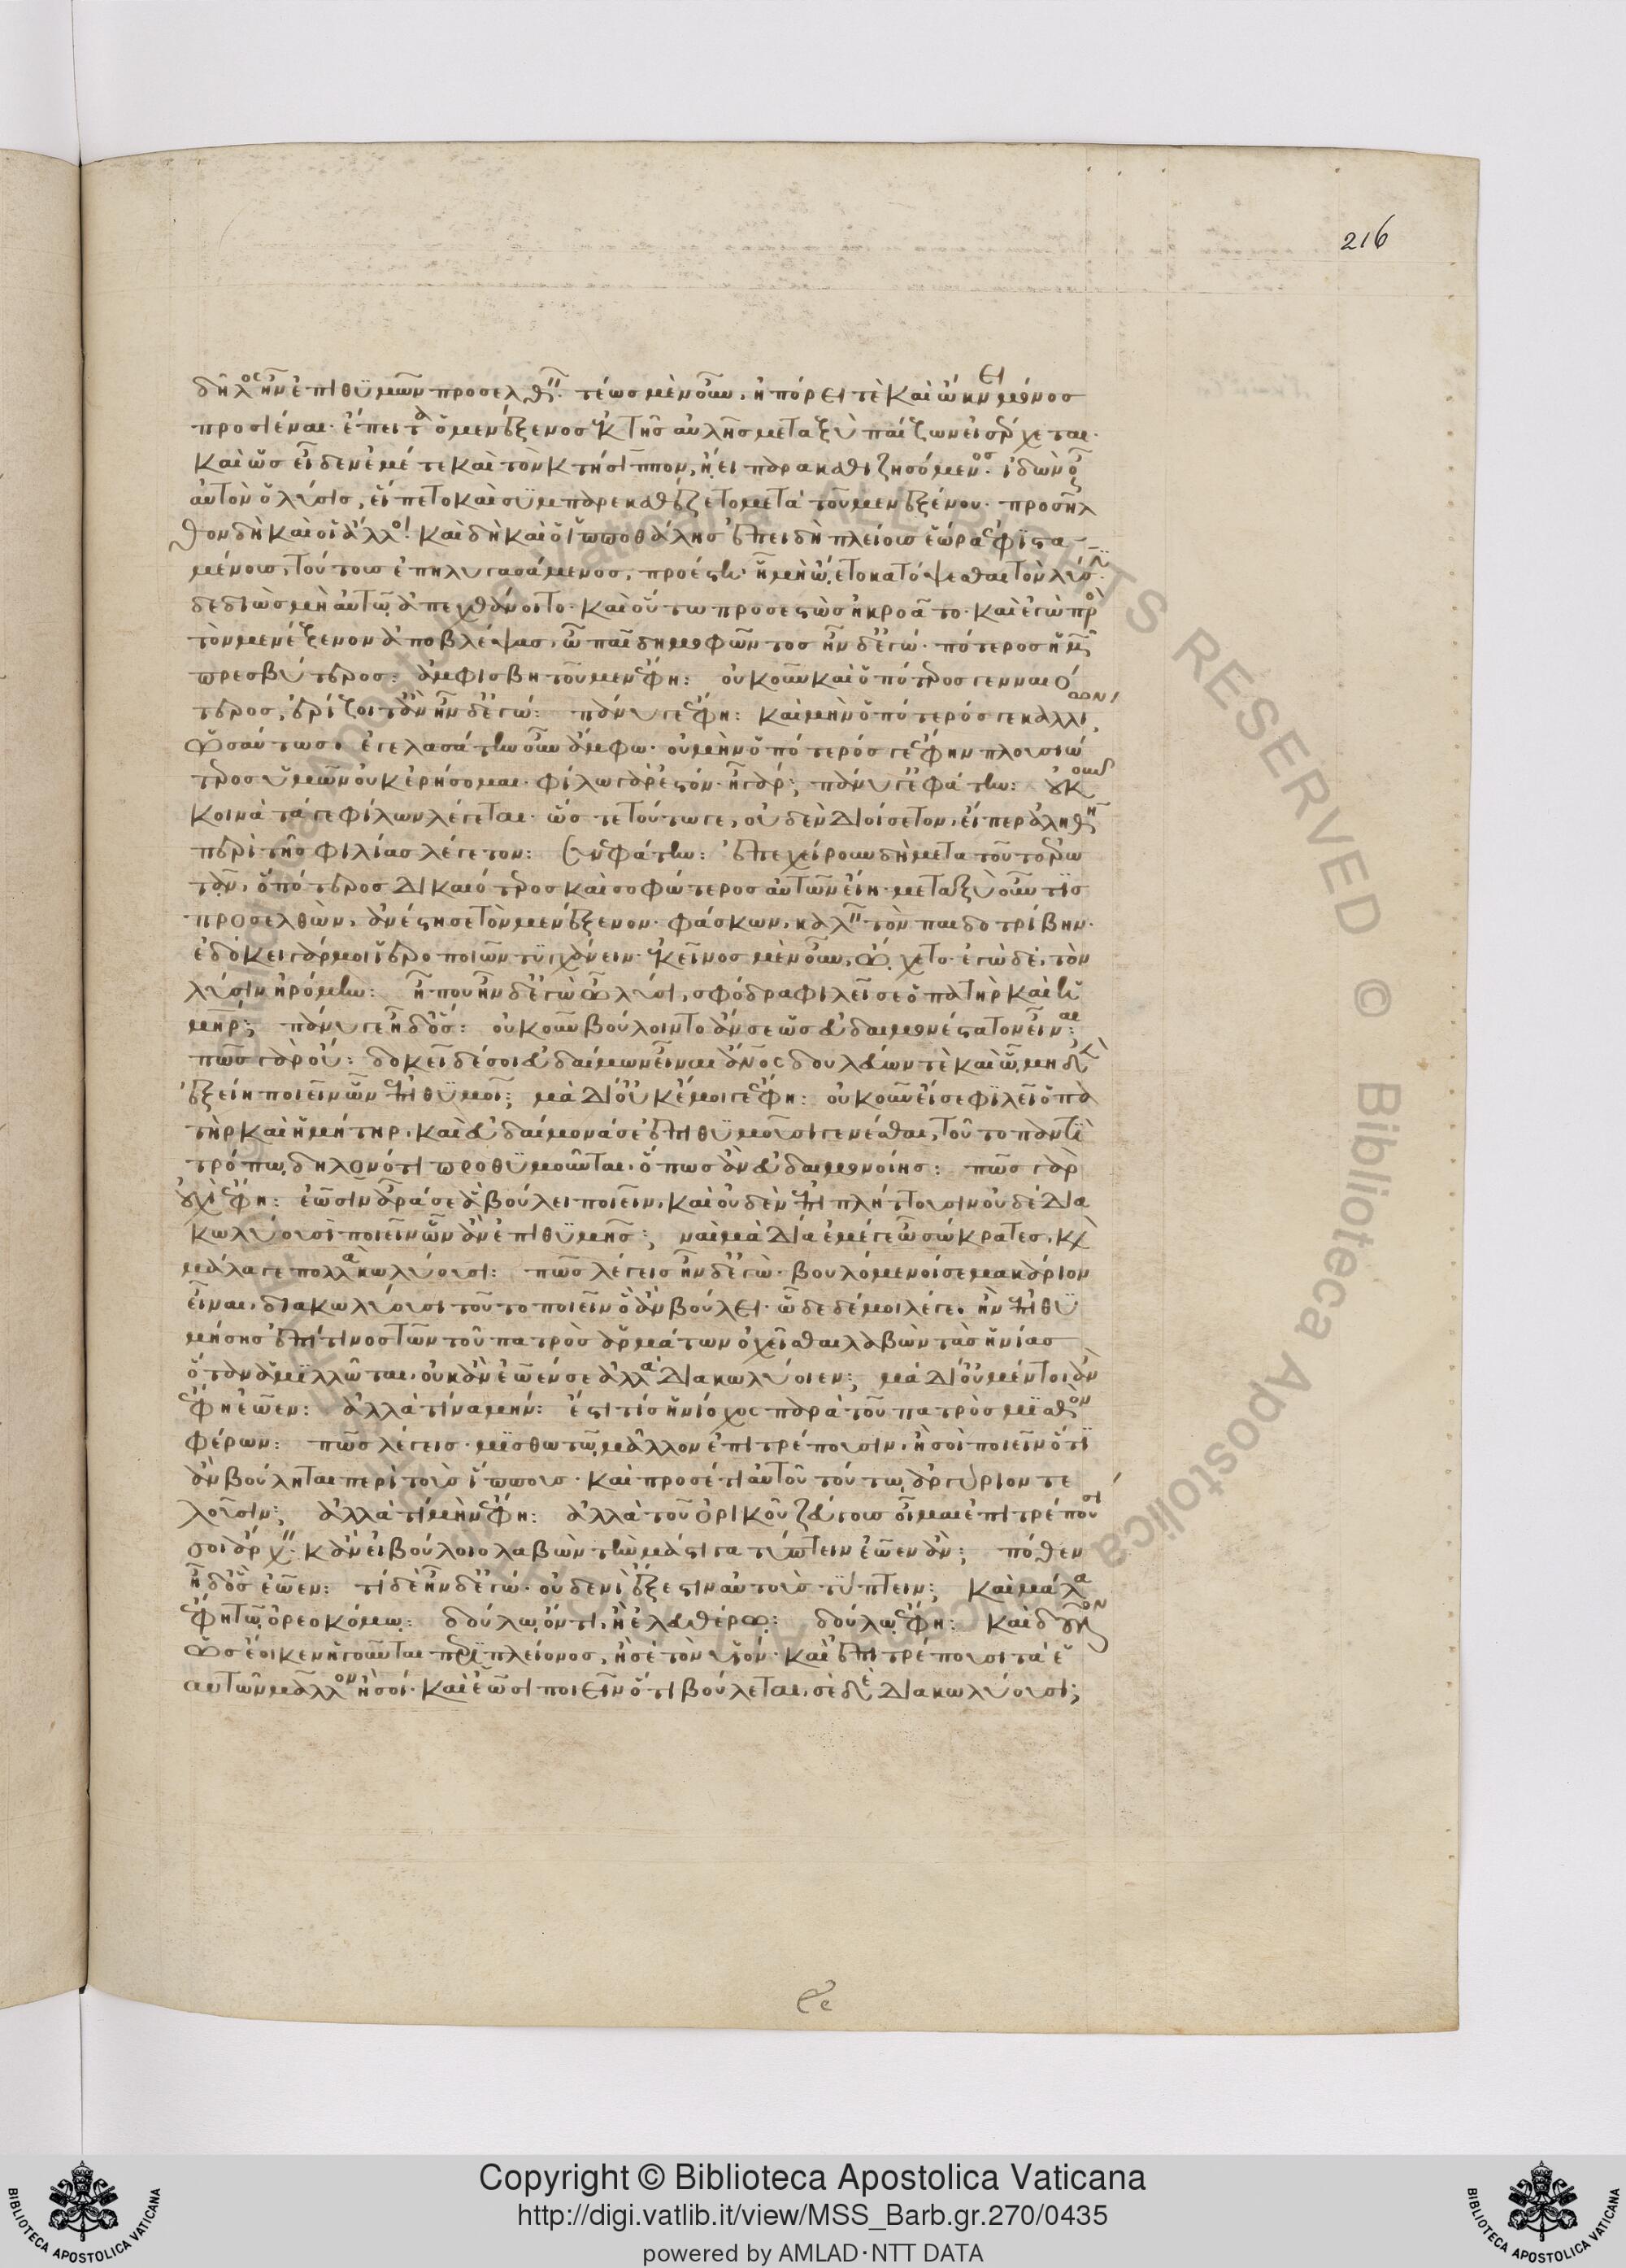 216
δῆλος ἦν ἐπιθυμῶν προσελθεῖν. τέως μὲν οὖν, ἠπόρει τὲ καὶ ὤκνει μόνος
προσιέναι. ἔπειτα ὁ μενέξενος ἐκ τῆς αὐλῆς μεταξὺ παίζων εἰσέρχεται.
καὶ ὡς εἶδεν ἐμέ τε καὶ τὸν κτήσιππον, ᾔει παρακαθιζησόμενος. ἰδὼν οὖν
αὐτὸν ὁ λύσις, εἵπετο καὶ συμπαρεκαθέζετο μετὰ τοῦ μενεξένου. προσῆλ
θον δὴ καὶ οἱ ἄλλοι. καὶ δὴ καὶ ὁ ἱπποθάλης ἐπειδὴ πλείους ἑώρα ἐφιστα
μένους, τούτους ἐπηλυγασάμενος, προέστη ᾗ μὴ ᾤετο κατόψεσθαι τὸν λύσιν.
δεδιὼς μὴ αὐτῷ ἀπεχθάνοιτο. καὶ οὕτω προσεστὼς ἠκροᾶτο. καὶ ἐγὼ πρὸς
τὸν μενέξενον ἀποβλέψας, ὦ παῖ δημοφῶντος ἦν δ' ἐγώ. πότερος ὑμῶν
πρεσβύτερος: ἀμφισβητοῦμεν ἔφη: οὐκοῦν καὶ ὁπότερος γενναιό
τερος, ἐρίζοιτ' ἂν ἦν δ' ἐγώ: πάνυ γε ἔφη: καὶ μὴν ὁπότερός γε καλλίων,
ὡσαύτως. ἐγελασάτην οὖν ἄμφω. οὐ μὴν ὁπότερός γε ἔφην πλουσιώ
τερος ὑμῶν οὐκ ἐρήσομαι. φίλω γάρ ἐστόν. ἦ γάρ; πάνυ γ' ἐφάτην: οὐκοῦν
κοινὰ τά γε φίλων λέγεται. ὥστε τούτω γε, οὐδὲν διοίσετον, εἴπερ ἀληθῆ
περὶ τῆς φιλίας λέγετον: συνεφάτην: ἐπεχείρουν δὴ μετὰ τοῦτο ἐρω
τᾶν, ὁπότερος δικαιότερος καὶ σοφώτερος αὐτῶν εἴη. μεταξὺ οὖν τὶς
προσελθὼν, ἀνέστησε τὸν μενέξενον. φάσκων, καλεῖν τὸν παιδοτρίβην.
ἐδόκει γάρ μοι ἱεροποιῶν τυγχάνειν. ἐκεῖνος μὲν οὖν, ᾤχετο. ἐγὼ δὲ, τὸν
λύσιν ἠρόμην: ἦ που ἦν δ' ἐγὼ ὦ λύσι, σφόδρα φιλεῖ σε ὁ πατὴρ καὶ ἡ
μήτηρ; πάνυ γε ἦ δ' ὅς: οὐκοῦν βούλοιντο ἄν σε ὡς εὐδαιμονέστατον εἶναι:
πῶς γὰρ οὔ: δοκεῖ δέ σοι εὐδαίμων εἶναι ἄνθρωπος δουλεύων τὲ καὶ ᾧ μηδὲν
ἐξείη ποιεῖν ὧν ἐπιθυμοῖ; μὰ Δί' οὐκ ἔμοιγε ἔφη: οὐκοῦν εἴ σε φιλεῖ ὁ πα
τὴρ καὶ ἡ μήτηρ, καὶ εὐδαίμονά σε ἐπιθυμοῦσι γενέσθαι, τοῦτο παντὶ
τρόπῳ δηλονότι προθυμοῦνται, ὅπως ἂν εὐδαιμονοίης: πῶς γὰρ
οὐχὶ ἔφη: ἐῶσιν ἄρα σε ἃ βούλει ποιεῖν, καὶ οὐδὲν ἐπιπλήττουσιν οὐδὲ δια
κωλύουσι ποιεῖν ὧν ἂν ἐπιθυμῇς; ναὶ μὰ Δία ἐμέ γε ὦ σώκρατες, καὶ
μάλα γε πολλὰ κωλύουσι: πῶς λέγεις ἦν δ' ἐγὼ. βουλόμενοί σε μακάριον
εἶναι, διακωλύουσι τοῦτο ποιεῖν ὃ ἂν βούλει. ὧδε δέ μοι λέγε. ἢν ἐπιθυ
μήσῃς ἐπί τινος τῶν τοῦ πατρὸς ἁρμάτων ὀχεῖσθαι λαβὼν τὰς ἡνίας
ὅταν ἁμιλλῶται, οὐκ ἂν ἐῷέν σε ἀλλὰ διακωλύοιεν; μὰ Δί' οὐ μέντοι ἂν
ἔφη ἐῷεν: ἀλλὰ τίνα μήν: ἔστι τίς ἡνίοχος παρὰ τοῦ πατρὸς μισθὸν
φέρων: πῶς λέγεις. μισθωτῷ μᾶλλον ἐπιτρέπουσιν, ἢ σοὶ ποιεῖν ὅτι
ἂν βούληται περὶ τοὺς ἵππους. καὶ προσέτι αὐτοῦ τούτῳ ἀργύριον τε
λοῦσιν; ἀλλὰ τί μὴν ἔφη: ἀλλὰ τοῦ ὀρικοῦ ζεύγους οἶμαι ἐπιτρέπουσί
σοι ἄρχειν. κἂν εἰ βούλοιο λαβὼν τὴν μάστιγα τύπτειν ἐῷεν ἄν; πόθεν
ἦ δ' ὃς ἐῷεν: τί δὲ ἦν δ' ἐγώ. οὐδενὶ ἔξεστιν αὐτοὺς τύπτειν; καὶ μάλα
ἔφη τῷ ὀρεοκόμῳ: δούλῳ ὄντι, ἢ ἐλευθέρῳ: δούλῳ ἔφη: καὶ δοῦλον
ὡς ἔοικεν ἡγοῦνται περὶ πλείονος, ἢ σὲ τὸν υἱόν. καὶ ἐπιτρέπουσι τὰ ἑ
αυτῶν μᾶλλον ἢ σοί. καὶ ἐῶσι ποιεῖν ὅτι βούλεται, σὲ δὲ διακωλύουσι;
Copyright © Biblioteca Apostolica Vaticana
http://digi.vatlib.it/view/MSS_Barb.gr.270/0435
powered by AMLAD·NTT DATA